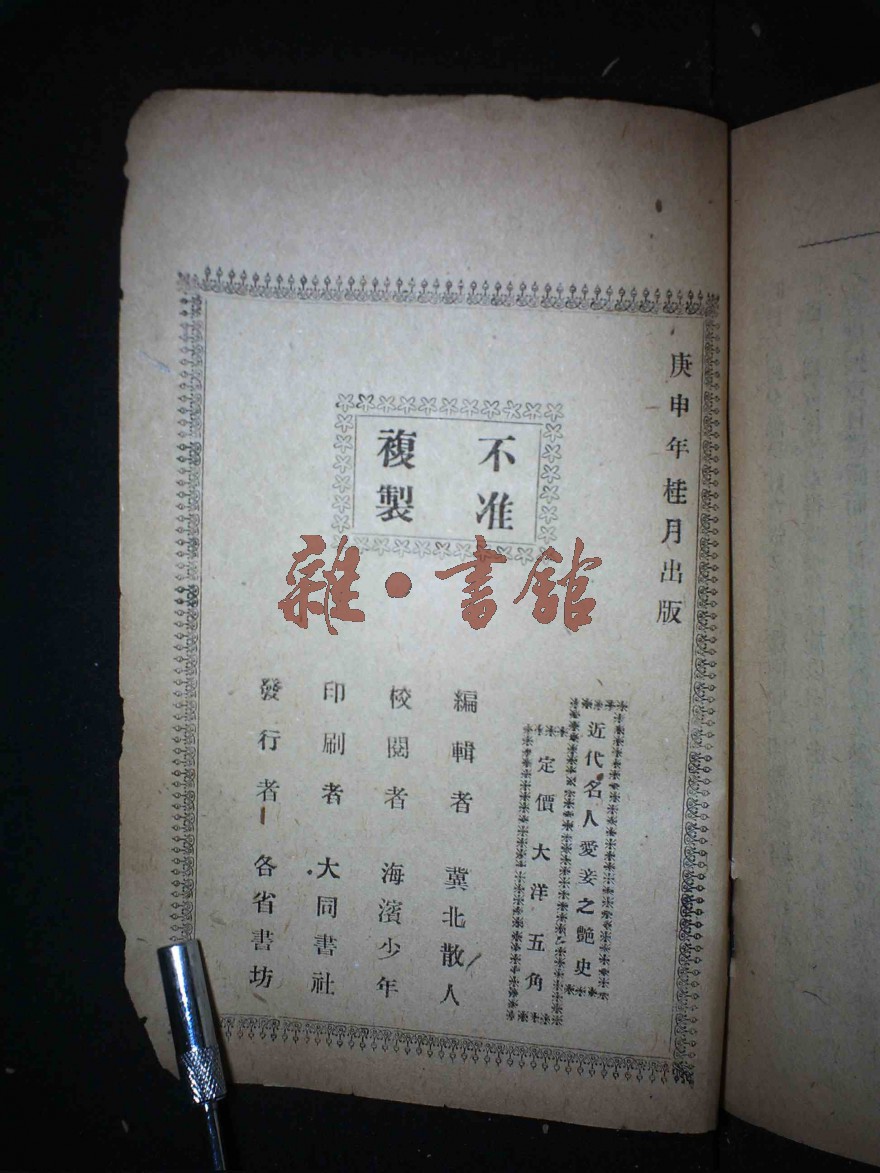 庚申年桂月出版
不准
複製
近代名人愛妾之艶史
定價大洋五角
編輯者 冀北散人
校閱者 海濱少年
印刷者 大同書社
發行者 各省書坊
雜·書館